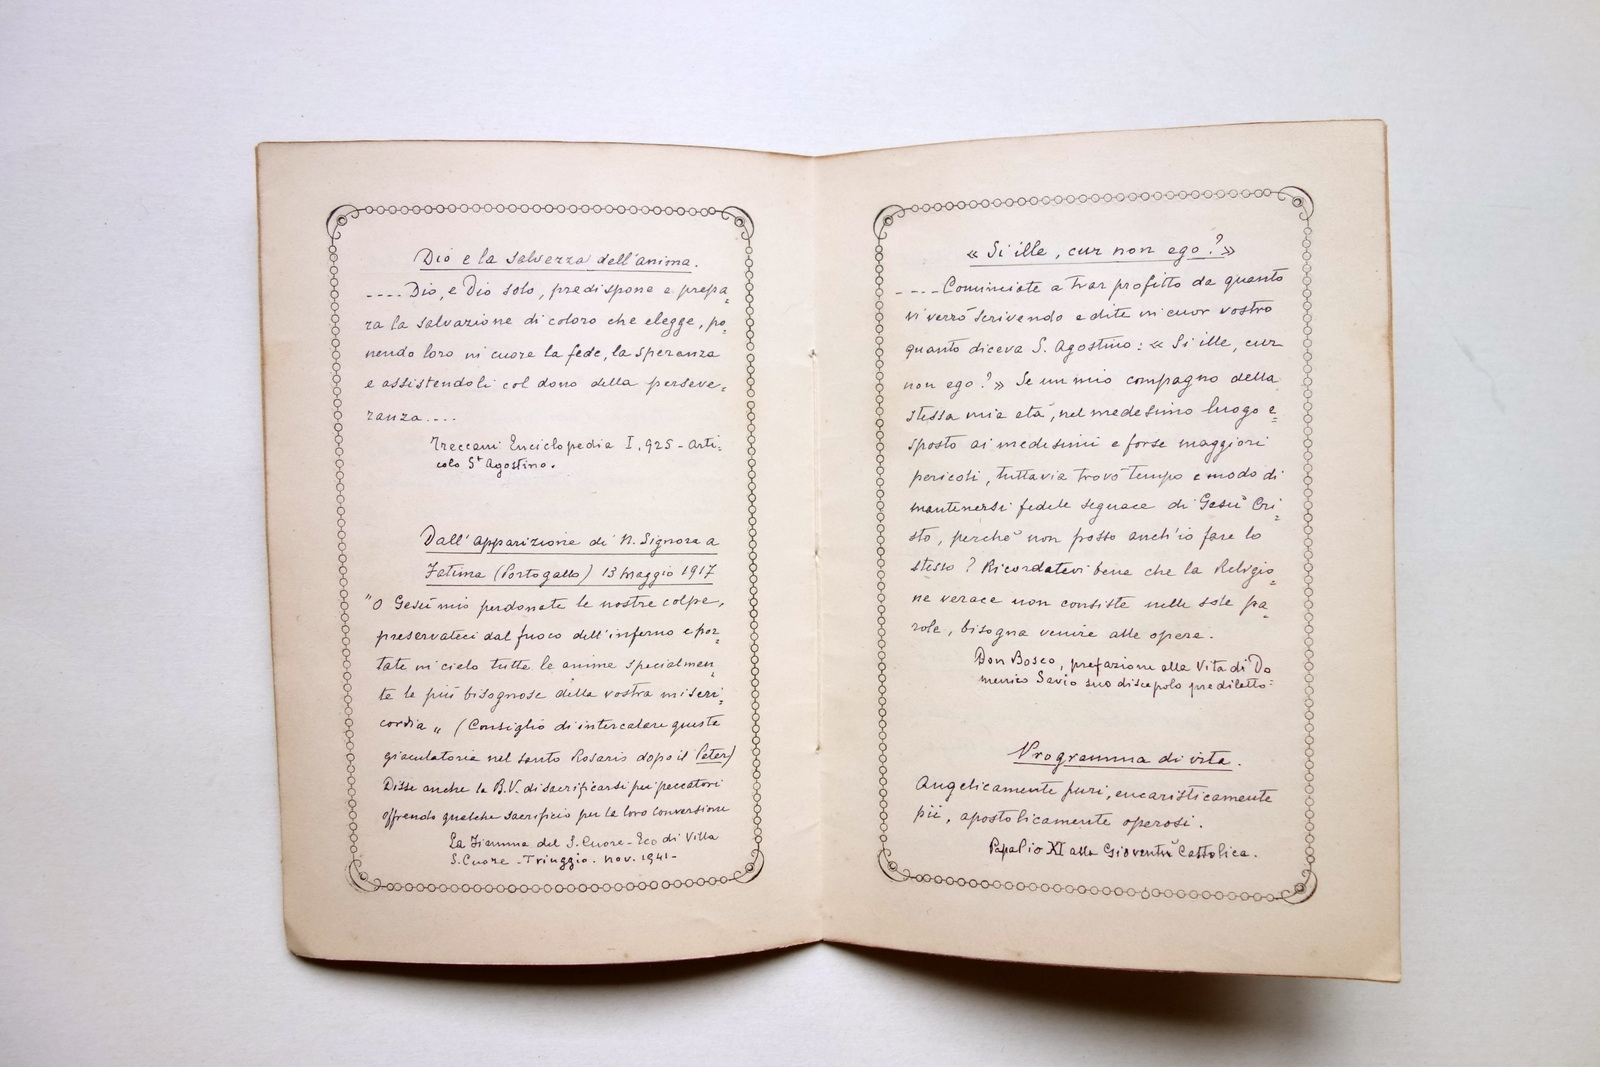 Dio e la salvezza dell'anima.
....Dio, e Dio solo, predispone e prepa=
ra la salvazione di coloro che elegge, po=
nendo loro in cuore la fede, la speranza
e assistendoli col dono della perseve=
ranza....
Treccani Enciclopedia I. 925 - Arti=
colo St Agostino.
Dall'apparizione di N. Signora a
Fatima (Portogallo) 13 Maggio 1917
"O Gesù mio perdonate le nostre colpe,
preservateci dal fuoco dell'inferno e por=
tate in cielo tutte le anime specialmen=
te le più bisognose della vostra miseri=
cordia „ (Consiglio di intercalare questa
giaculatoria nel santo Rosario dopo il Pater)
Disse anche la B.V. di sacrificarsi pei peccatori
offrendo qualche sacrificio per la loro conversione
La Fiamma del S. Cuore - Eco di Villa
S. Cuore - Triuggio. Nov. 1941-
« Si ille, cur non ego ? »
----Cominciate a trar profitto da quanto
vi verrò scrivendo e dite in cuor vostro
quanto diceva S. Agostino : « Si ille, cur
non ego ? » Se un mio compagno della
stessa mia età, nel medesimo luogo e=
sposto ai medesimi e forse maggiori
pericoli, tuttavia trovò tempo e modo di
mantenersi fedele seguace di Gesù Cri=
sto, perchè non posso anch'io fare lo
stesso ? Ricordatevi bene che la Religio=
ne verace non consiste nelle sole pa=
role, bisogna venire alle opere.
Don Bosco, prefazione alla Vita di Do
menico Savio suo discepolo prediletto=
Programma di vita.
Angelicamente puri, eucaristicamente
pii, apostolicamente operosi.
Papa Pio XI alla Gioventù Cattolica.